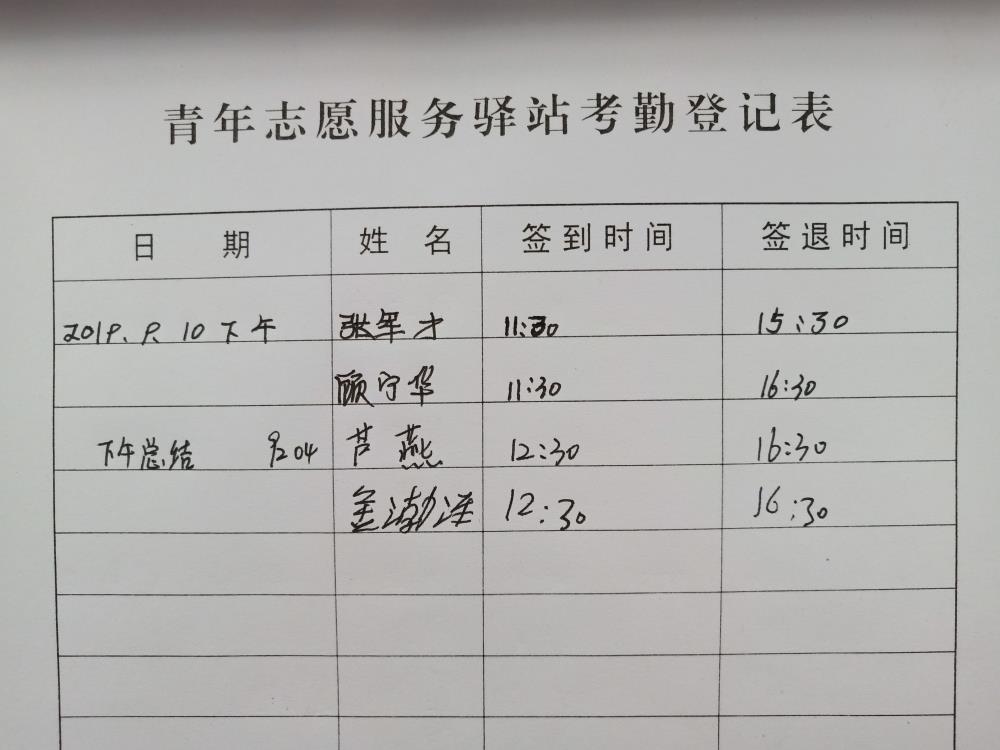 青年志愿服务驿站考勤登记表
日 期 姓 名 签到时间 签退时间
2019.9.10下午 张军才 11:30 15:30
顾宁华 11:30 16:30
下午总结 9204 芦燕 12:30 16:30
金渤淮 12:30 16:30